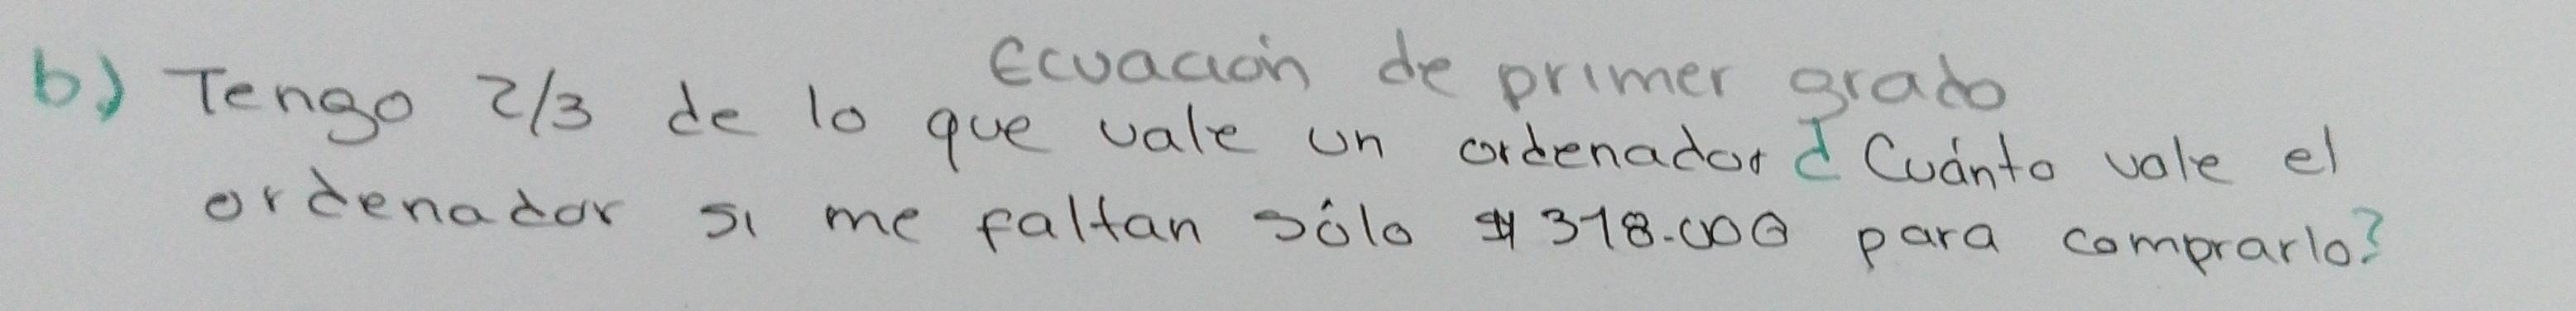 Ecuación de primer grado
b) Tengo 2/3 de lo que vale un ordenador ¿Cuánto vale el
ordenador si me faltan sólo $318.000 para comprarlo?